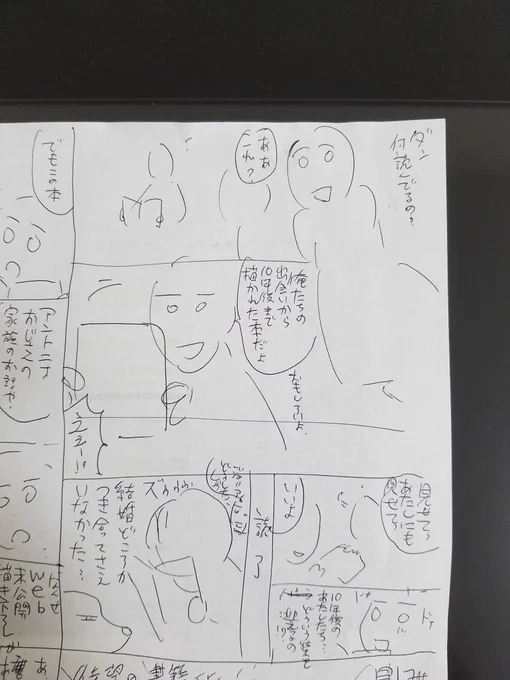 ダン
何読んでるの?
ああ
これ?
俺たちの
出会いから
10年後まで
描かれた本だよ
おもしろいよ
ええー!!
見せてっ
あたしにも
見せてっ
いいよ
10年後の
あたしたち…
どういう
ドキ
ドキ
読了
ズゥゥゥン
結婚どころか
つき合ってさえ
いなかった…
でもこの本
アントニオ
おじさんの
家族のお話や
なぜ
web
未公開
描き下ろし